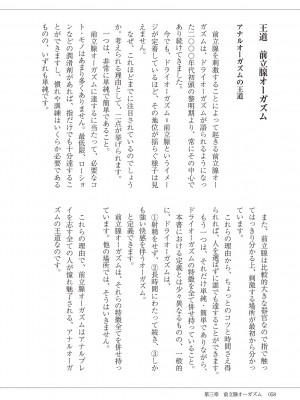 王道　前立腺オーガズム
アナルオーガズムの王道
　前立腺を刺激することによって起きる前立腺オー
ガズムは、ドライオーガズムが語られるようになっ
た二〇〇〇年代初頭の黎明期より、常にその中心で
あり続けてきました。
　今でも、ドライオーガズム＝前立腺というイメー
ジが定着しているほど、その地位が揺らぐ様子は見
ていません。
　なぜ、これほどまでに注目されているのでしょう
か。考えられる理由として、二点が挙げられます。
　一つは、非常に単純で簡単であること。
　前立腺オーガズムに達するに当たって、必要なコ
ト・モノはあまり多くありません。最低限、ローショ
ンなどの潤滑剤があれば、指だけでも十分達するこ
とができますし、慣れや訓練はいくらか必要である
ものの、いずれも単純です。
　また、前立腺は比較的大きな器官なので指で触っ
てはっきり分かるし、刺激する場所が最初から分かっ
ています。
　これらの理由から、ちょっとのコツと時間さえ得
られれば、人を選ばずに誰でも達することができます。
　もう一つは、それだけ単純・簡単でありながら、
ドライオーガズムの特徴を全て備えていること。
　本書における定義とは少々異なるものの、一般的
に、ドライオーガズムは、
①射精をせず、②長時間にわたって続き、③しか
も強い快感を伴うオーガズム。
と定義できます。
　前立腺オーガズムは、それらの特徴全てを併せ持っ
ています。他の場所では、そうはいきません。
　これらの理由で、前立腺オーガズムはアナルプレ
イを志す全ての人が憧れ魅了される、アナルオーガ
ズムの王道なのです。
第三章　前立腺オーガズム　058